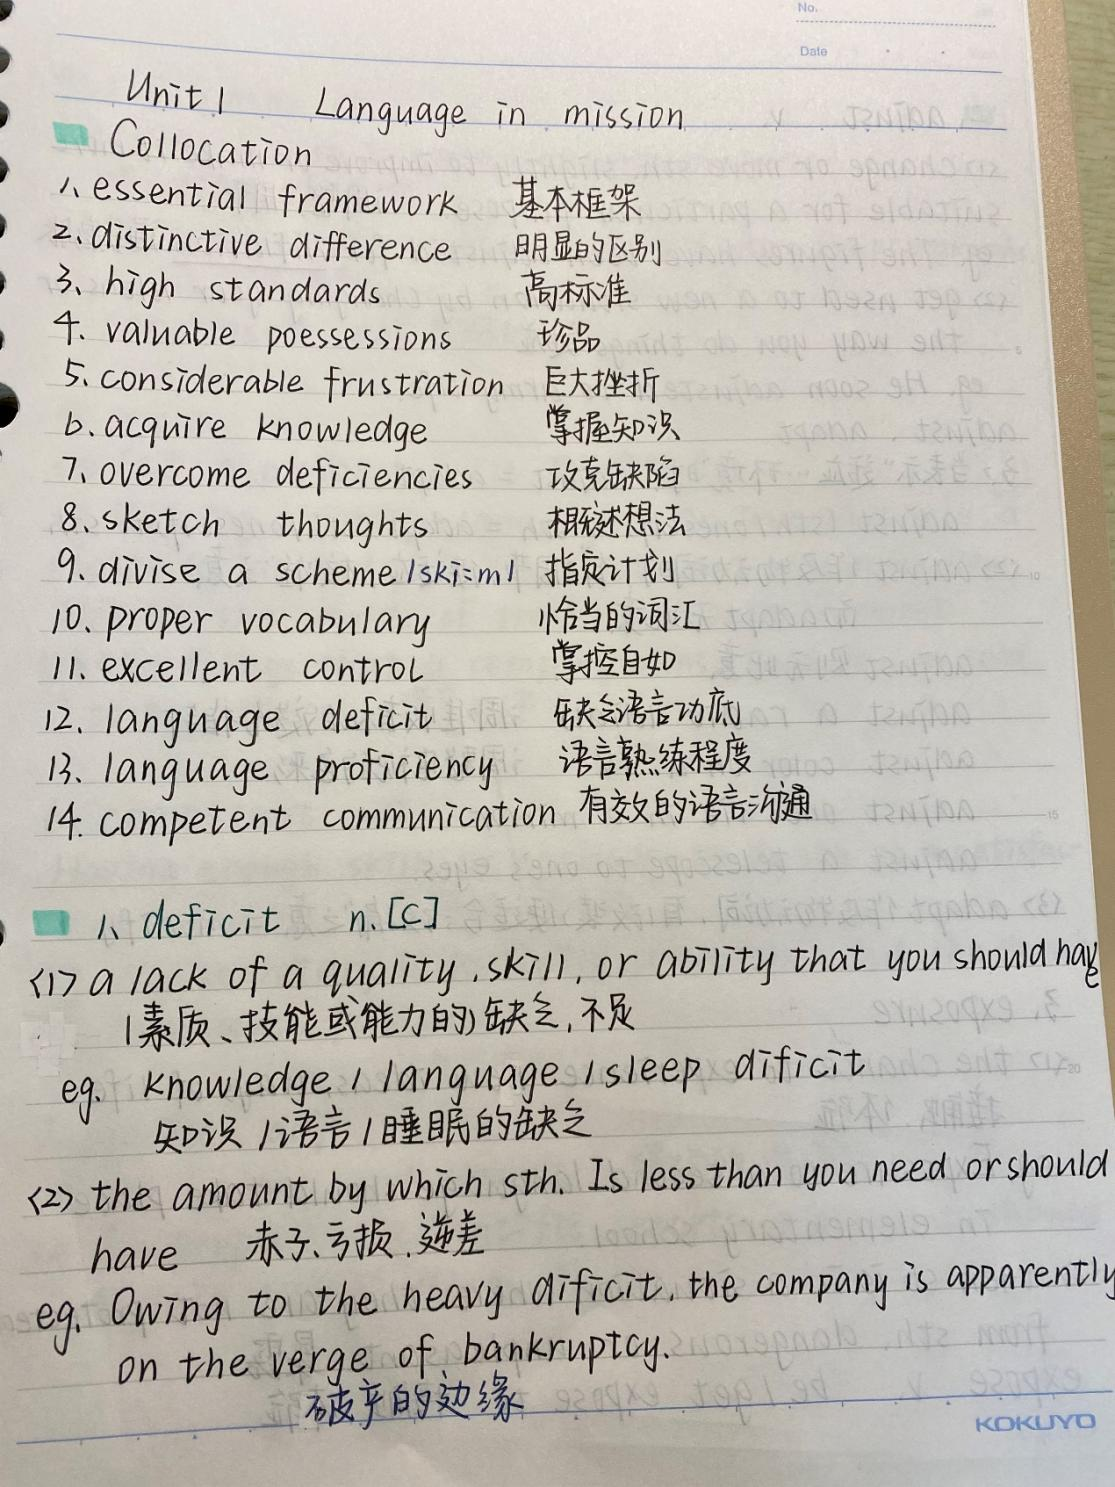 No.
Date
Unit 1 Language in mission
Collocation
1. essential framework 基本框架
2. distinctive difference 明显的区别
3. high standards 高标准
4. valuable poessessions 珍品
5. considerable frustration 巨大挫折
6. acquire knowledge 掌握知识
7. overcome deficiencies 攻克缺陷
8. sketch thoughts 概述想法
9. divise a scheme /ski:m/ 指定计划
10. proper vocabulary 恰当的词汇
11. excellent control 掌控自如
12. language deficit 缺乏语言功底
13. language proficiency 语言熟练程度
14. competent communication 有效的语言沟通
1. deficit n. [C]
<1> a lack of a quality, skill, or ability that you should have
(素质、技能或能力的)缺乏,不足
eg. knowledge / language / sleep dificit
知识 / 语言 / 睡眠的缺乏
<2> the amount by which sth. Is less than you need or should
have 赤子、亏损、逆差
eg. Owing to the heavy dificit, the company is apparently
on the verge of bankruptcy.
破产的边缘
KOKUYO